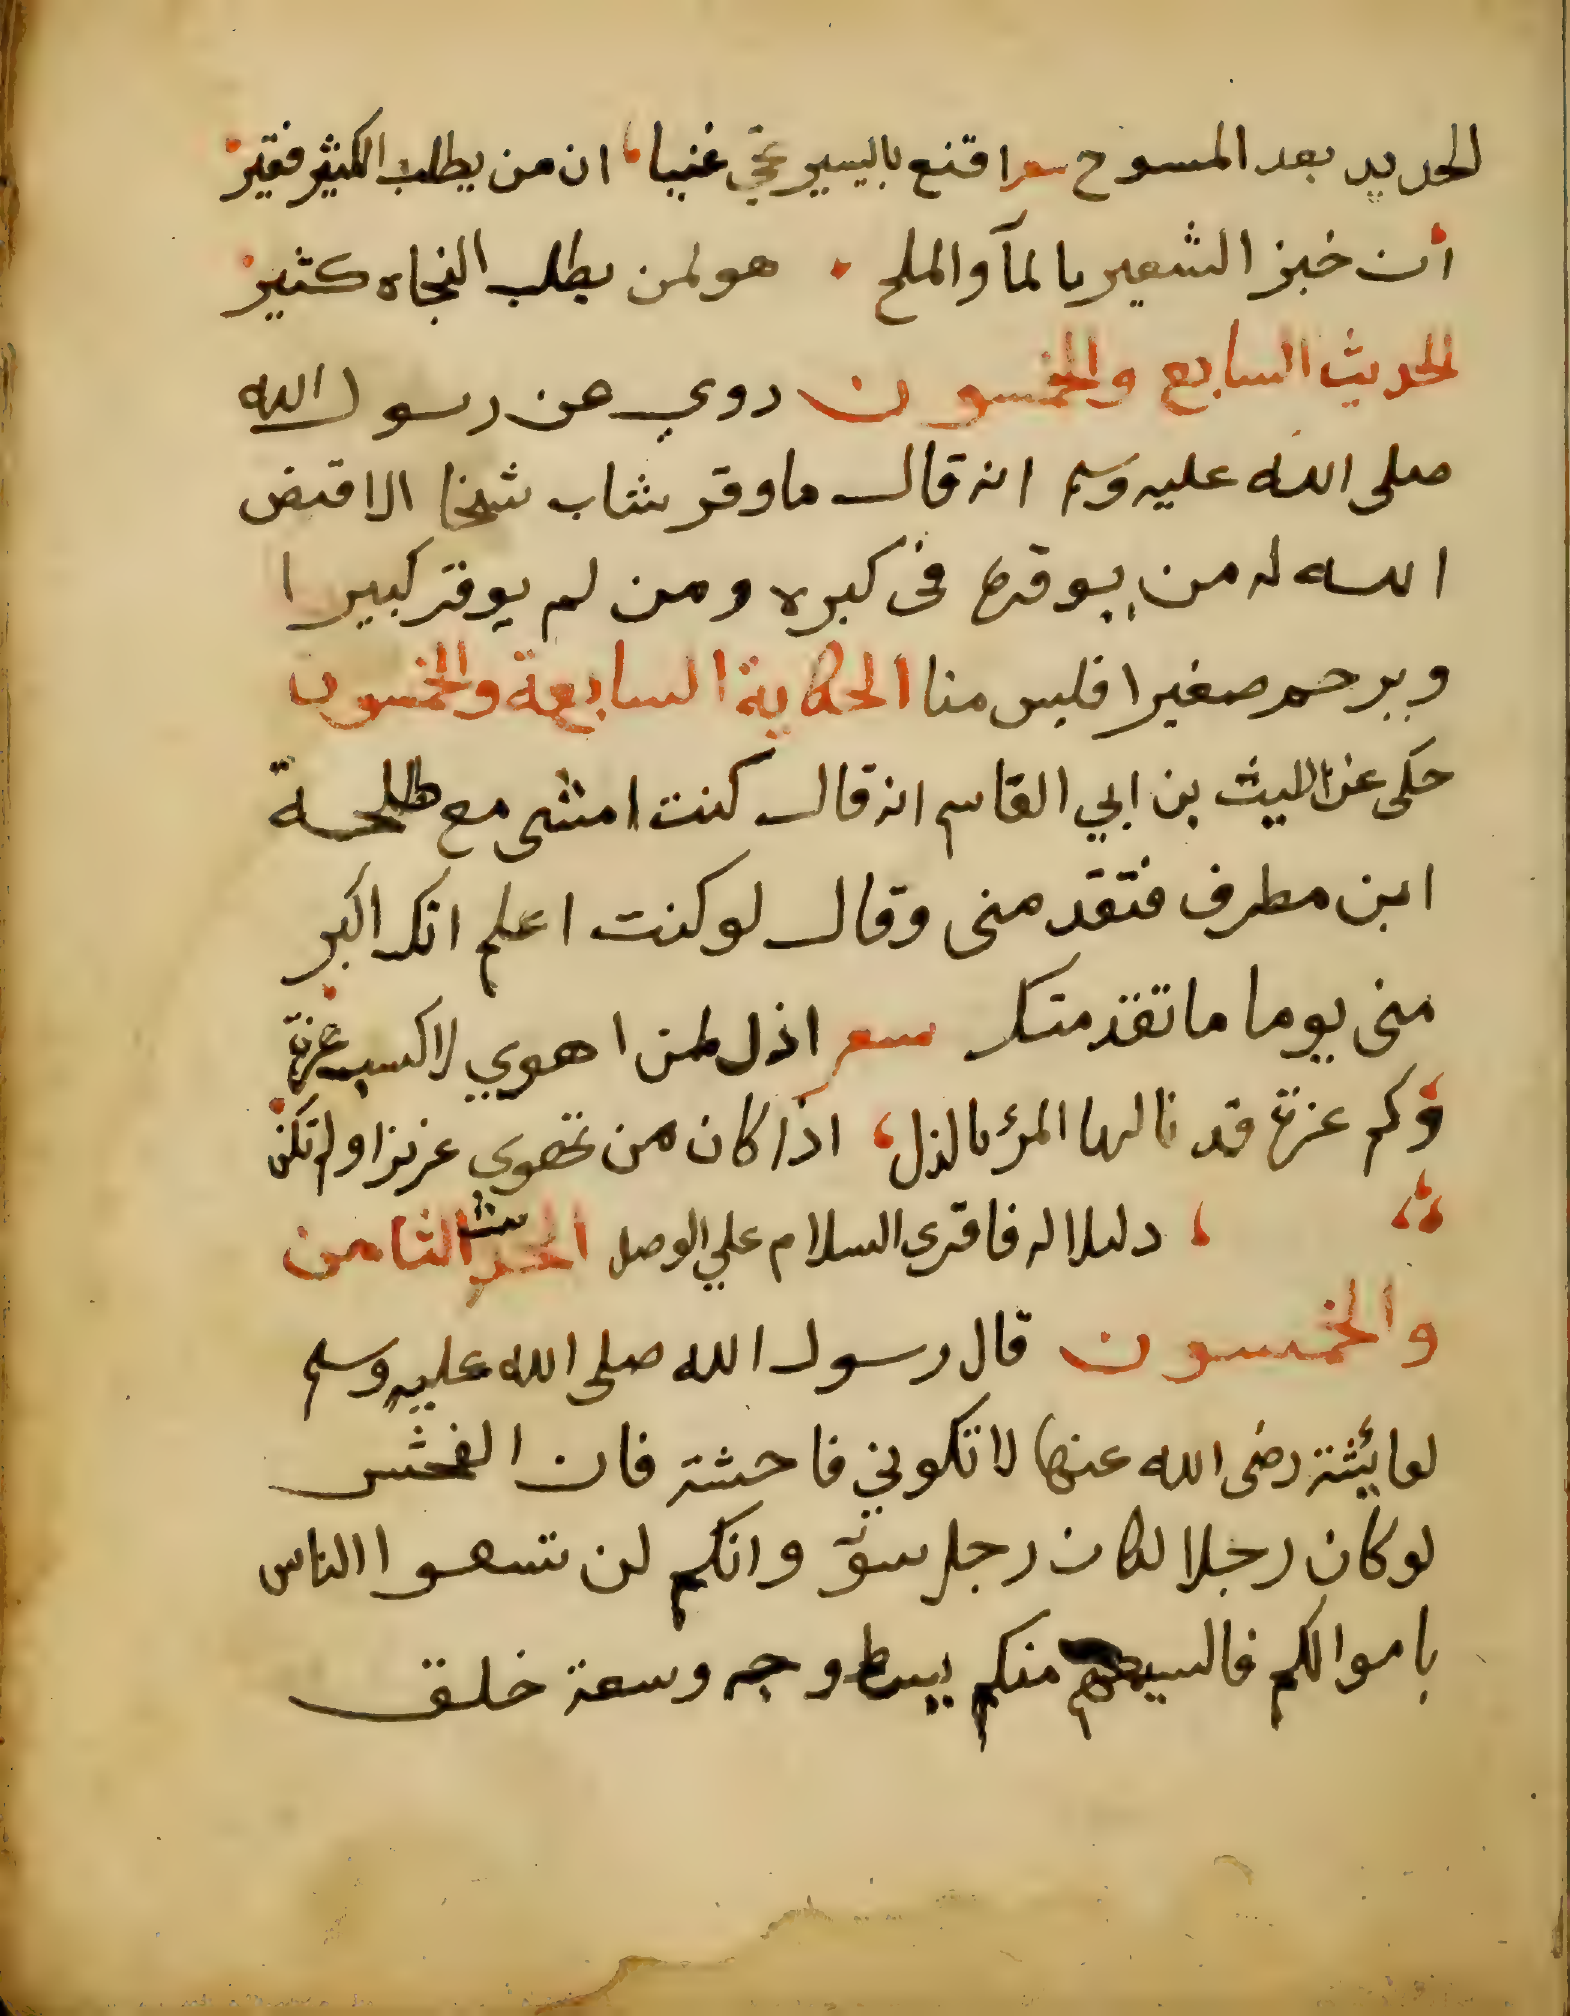 الحديد بعد المسوح سعر اقنع باليسير تحي غنيا، ان من يطلب الكثير فقير
أن خبز الشعير بالمآ والملح . هو لمن يطلب النجاه كثير
الحديث السابع والخمسون روي عن رسول الله
صلى الله عليه وسلم انه قال ما وقر شاب شيخا الا اقتض
الله له من يوقره في كبره ومن لم يوقر كبيرا
ويرحم صغيرا فليس منا الحكاية السابعة والخمسون
حكى عن الليث بن ابي القاسم انه قال كنت امشى مع طلحة
ابن مطرف فتقد منى وقال لو كنت اعلم انك اكبر
منى يوما ما تقدمتك سعر اذل لمن اهوي لاكسب عزة
وكم عزة قد نالها المرء بالذل، اذا كان من تهوي عزيزا ولم تكن
، دليلا له فاقرى السلام علي الوصل الحديث الثامن
والخمسون قال رسول الله صلى الله عليه وسلم
لعائشة رضى الله عنها لا تكوني فاحشة فان الفحش
لو كان رجلا لكان رجل سوء وانكم لن تسعوا الناس
باموالكم فاليسعهم منكم ببسط وجه وسعة خلق